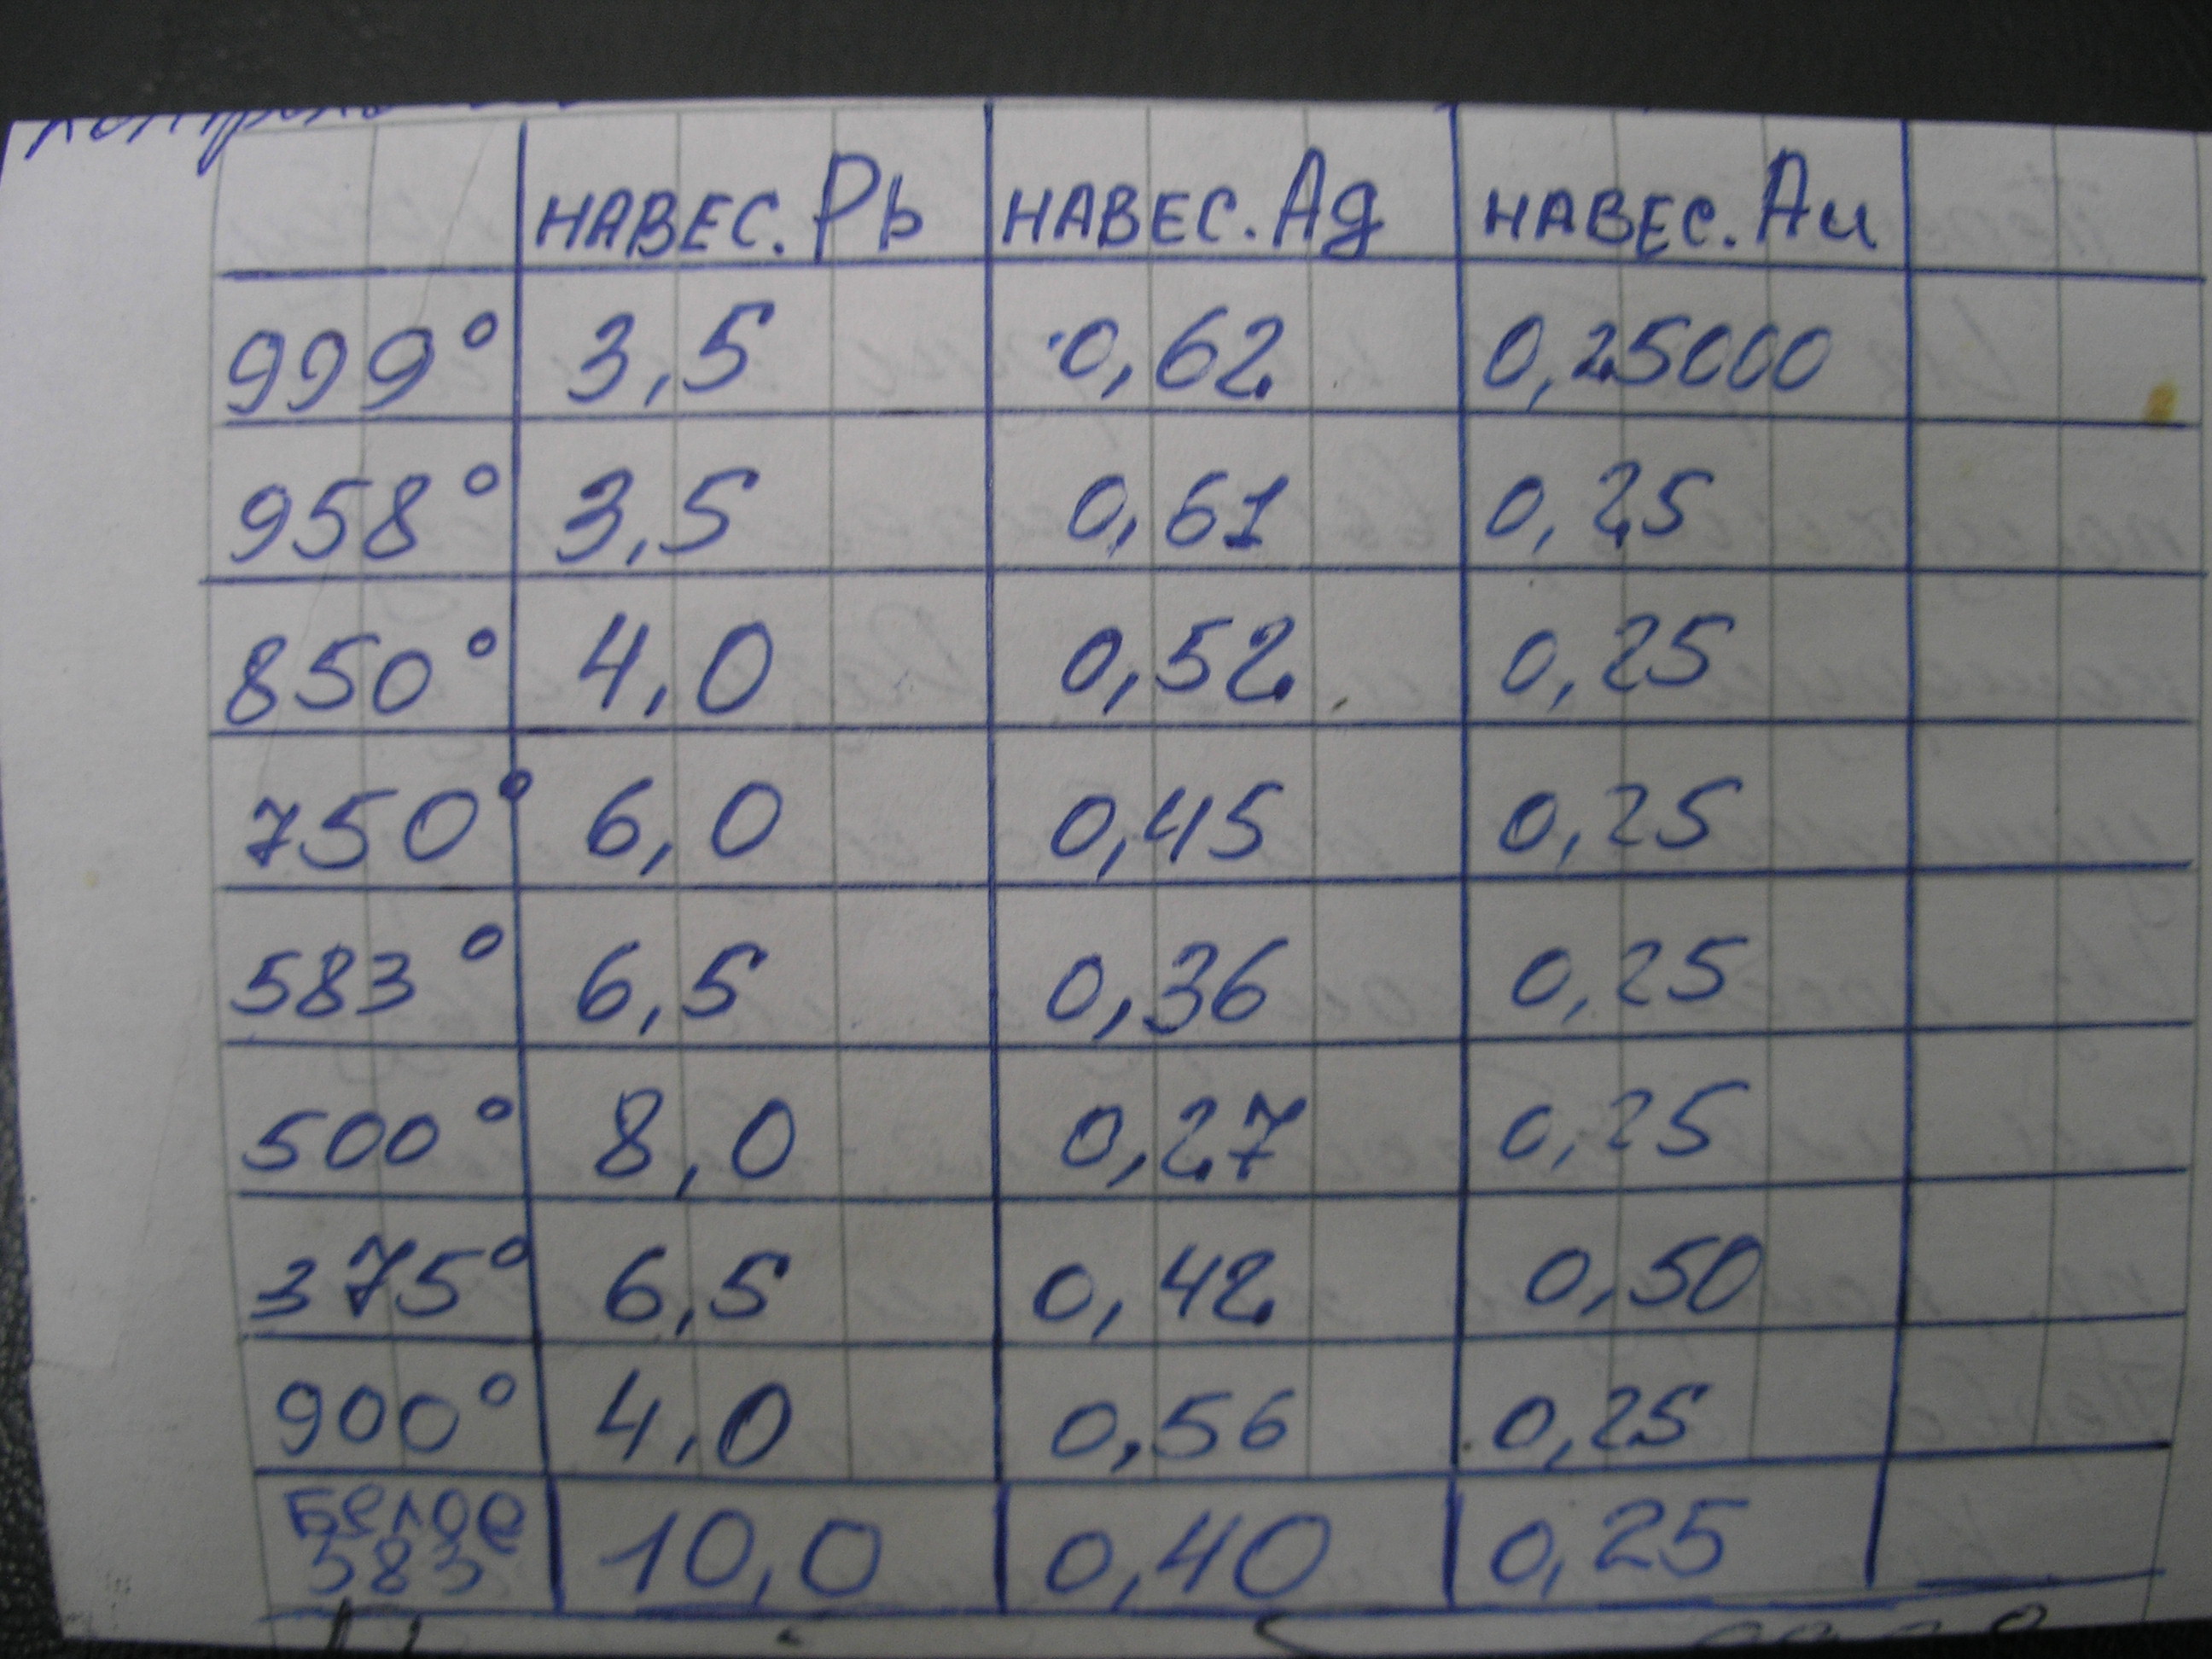 НАВЕС. Pb НАВЕС. Ag НАВЕС. Au
999° 3,5 0,62 0,25000
958° 3,5 0,61 0,25
850° 4,0 0,52 0,25
750° 6,0 0,45 0,25
583° 6,5 0,36 0,25
500° 8,0 0,27 0,25
375° 6,5 0,42 0,50
900° 4,0 0,56 0,25
Белое 10,0 0,40 0,25
583